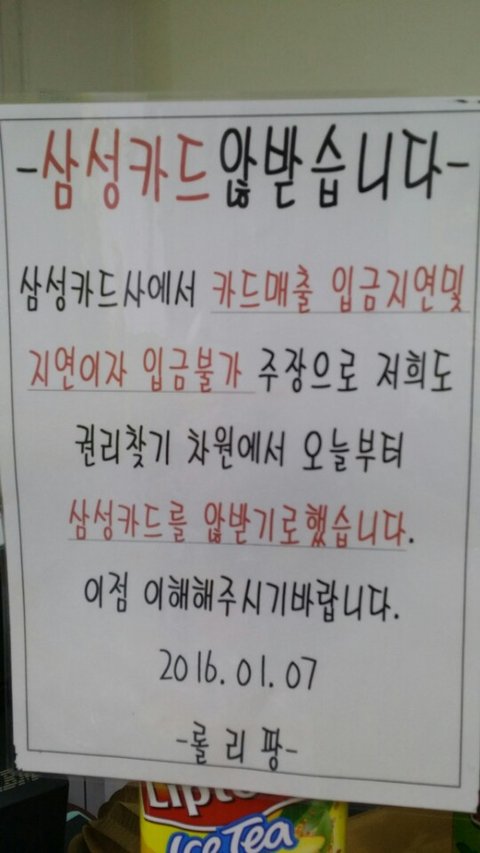 -삼성카드않받습니다-
삼성카드사에서 카드매출 입금지연및
지연이자 입금불가 주장으로 저희도
권리찾기 차원에서 오늘부터
삼성카드를 않받기로했습니다.
이점 이해해주시기바랍니다.
2016.01.07
-롤리팡-
IBM
Lipton
Ice Tea